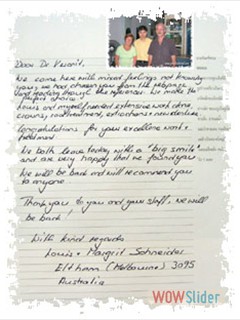 Dear Dr
We came here with mixed feelings not knowing
you, we had chosen you from the
and reading through the references. We made the
perfect choice
Louis and myself needed extensive work done,
crowns, root treatment, extractions & new dentures
Congratulations for your excellent work &
treatment
We both leave today with a "big smile"
and are very happy that we found you
We will be back and will recommend you
to anyone
Thank you to you and your staff, we will
be back!
With kind regards
Louis & Margrit Schneider
Eltham (Melbourne) 3095
Australia
WOWSlider